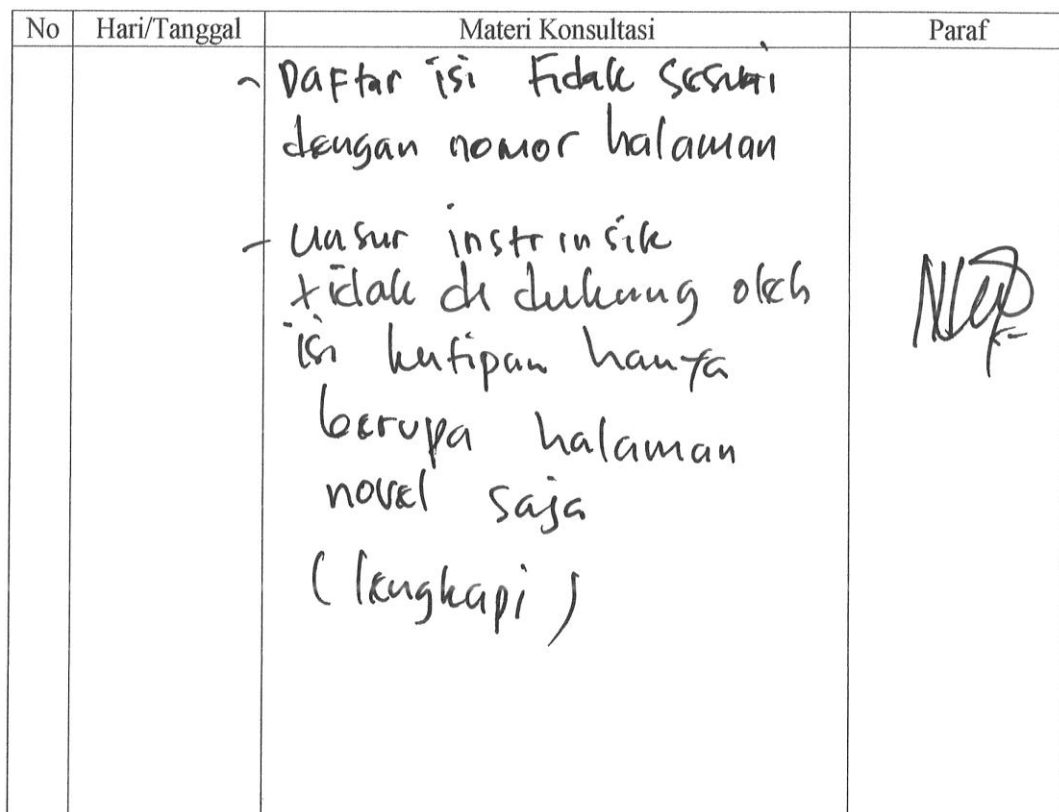 No Hari/Tanggal Materi Konsultasi Paraf
- Daftar isi tidak sesuai
dengan nomor halaman
- unsur instrinsik
tidak di dukung oleh
isi kutipan hanya
berupa halaman
novel saja
(lengkapi)